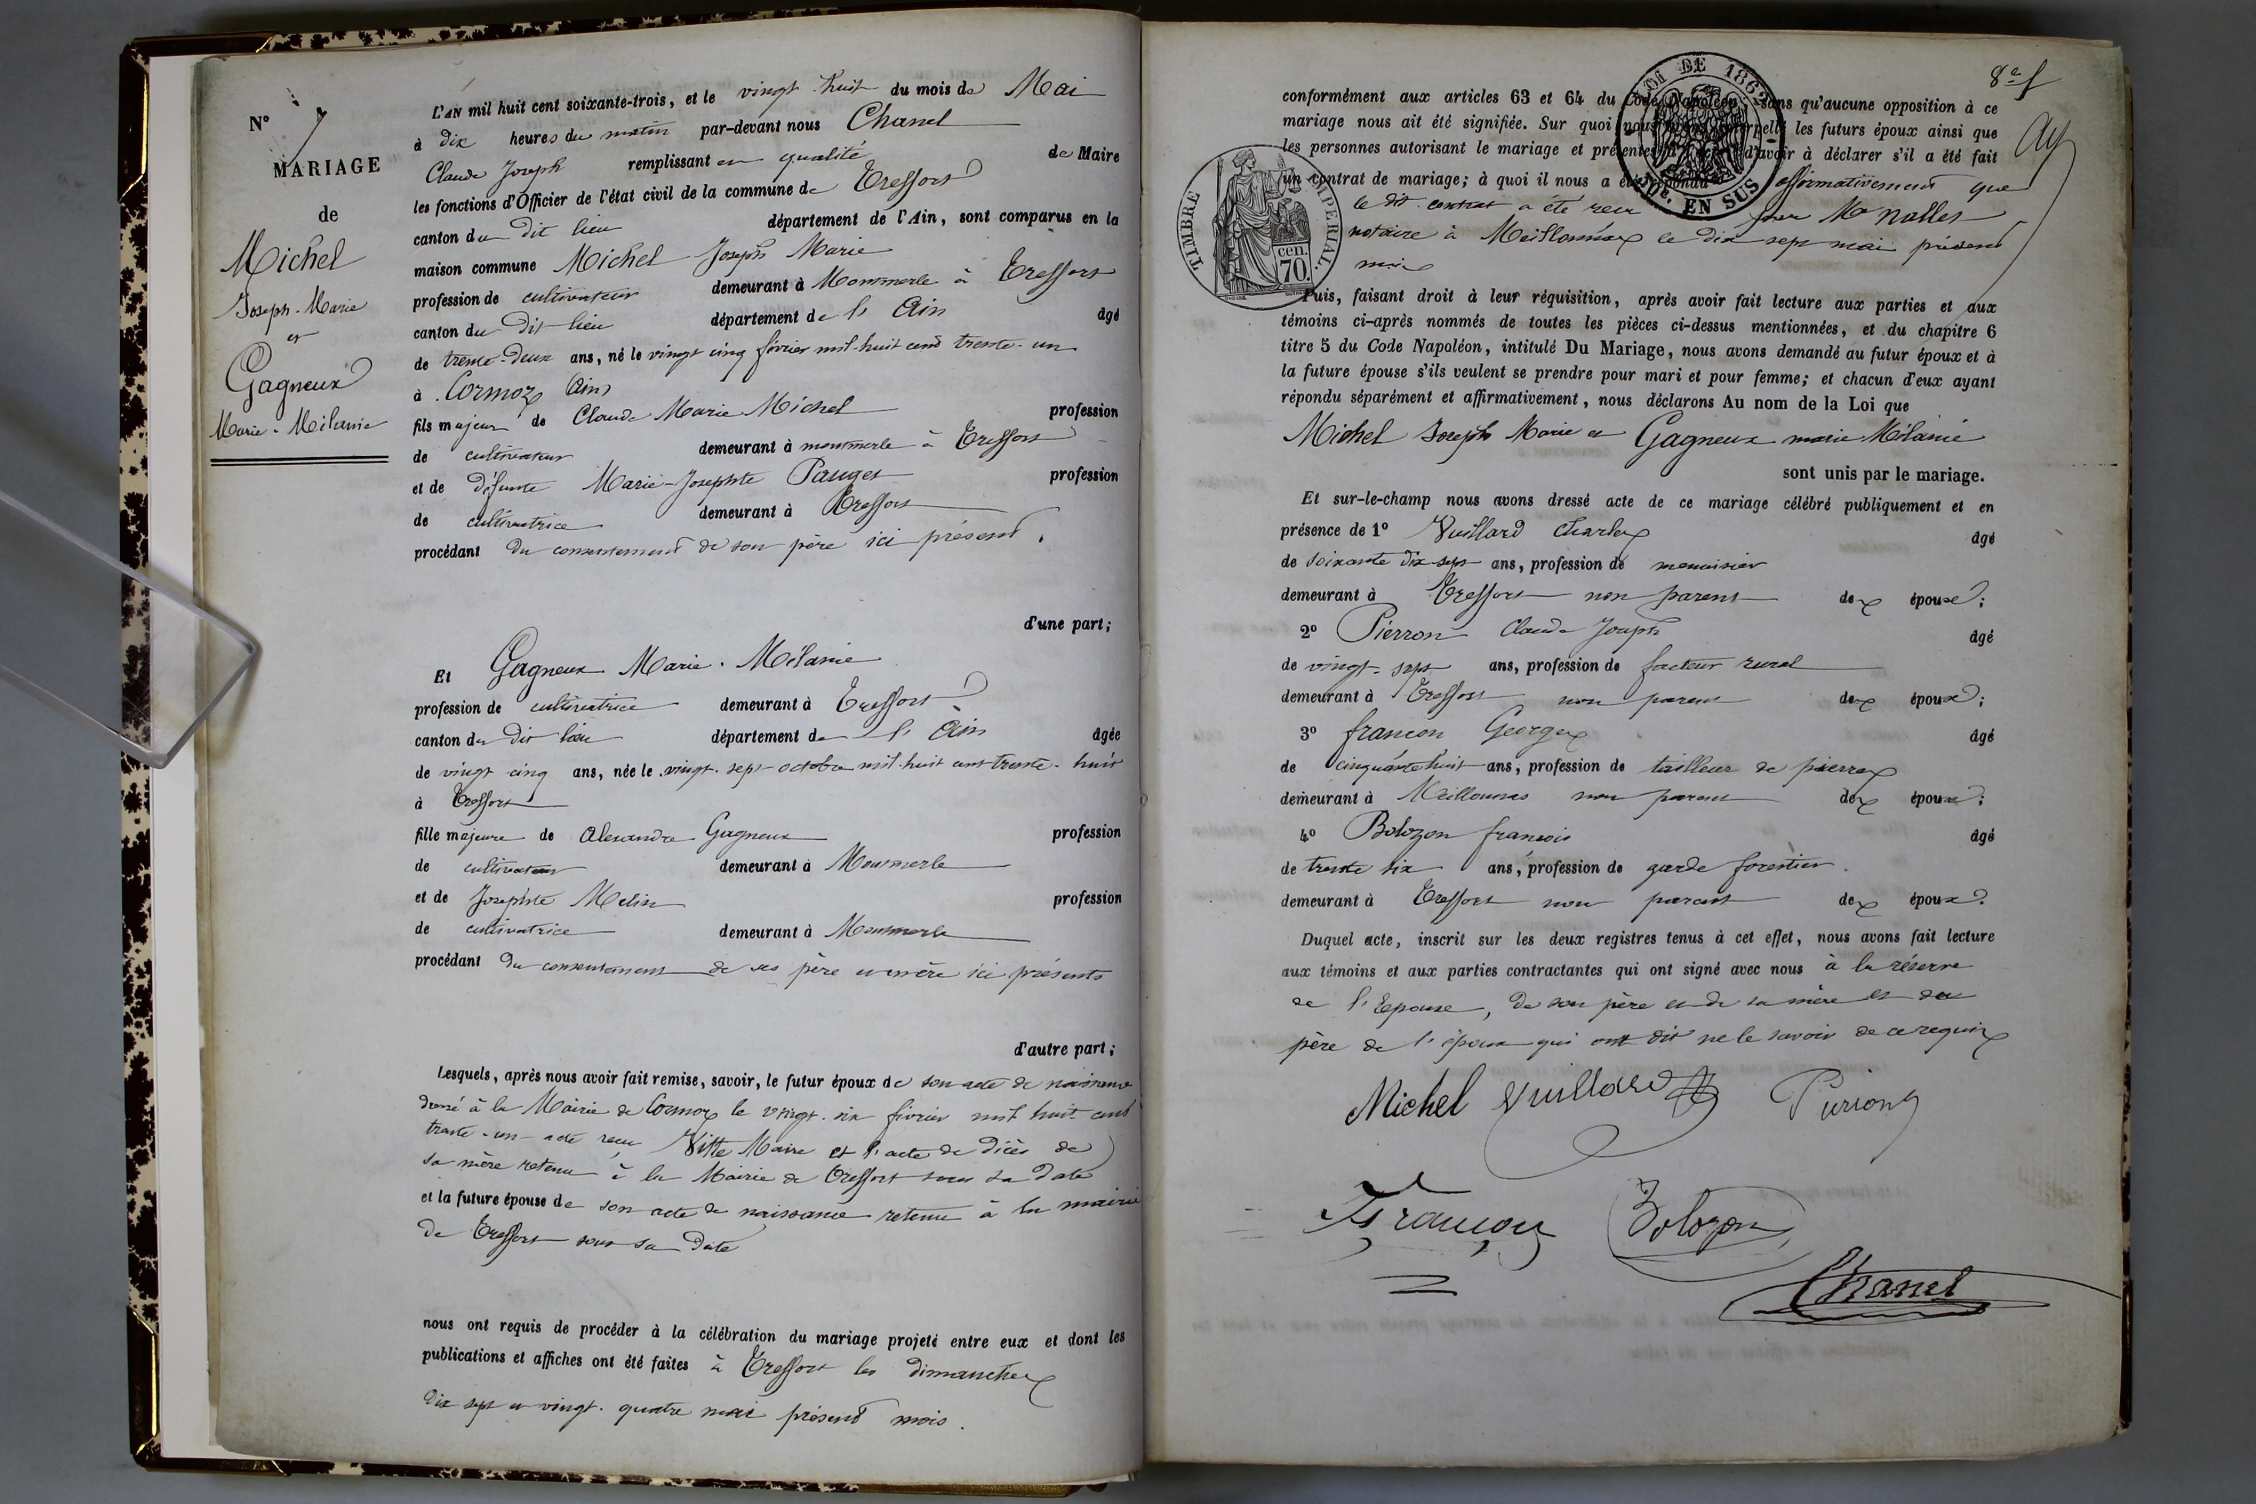 N° 7
MARIAGE
de
Michel
Joseph-Marie
et
Gagneux
Marie-Mélanie
L'AN mil huit cent soixante-trois, et le vingt huit du mois de Mai
à dix heures du matin par-devant nous Chanel
Claude Joseph remplissant en qualité de Maire
les fonctions d'Officier de l'état civil de la commune de Treffort
canton du dit lieu département de l'Ain, sont comparus en la
maison commune Michel Joseph Marie
profession de cultivateur demeurant à Montmerle à Treffort
canton du Dit lieu département de l' Ain âgé
de trente-deux ans, né le vingt cinq février mil-huit cent trente-un
à Cormoz Ain
fils majeur de Claude Marie Michel profession
de cultivateur demeurant à montmerle à Treffort
et de défunte Marie-Josephte profession
de cultivatrice demeurant à Treffort
procédant du consentement de son père ici présent.
d'une part;
Et Gagneux Marie-Mélanie
profession de cultivatrice demeurant à Treffort
canton du dit lieu département de l' Ain âgée
de vingt cinq ans, née le vingt-sept octobre mil-huit cent trente-huit
à Treffort
fille majeure de Alexandre Gagneux profession
de cultivateur demeurant à Montmerle
et de Josephte Melin profession
de cultivatrice demeurant à Montmerle
procédant du consentement de ses père et mère ici présents
d'autre part;
Lesquels, après nous avoir fait remise, savoir, le futur époux de son acte de naissance
dressé à la Mairie de Cormoz le vingt-six février mil huit cent
trente-un acte reçu Vitte Maire et l'acte de décès de
sa mère retenu à la Mairie de Treffort sous sa date
et la future épouse de son acte de naissance retenu à la mairie
de Treffort sous sa date
nous ont requis de procéder à la célébration du mariage projeté entre eux et dont les
publications et affiches ont été faites à Treffort les dimanches
dix sept et vingt-quatre mai présent mois.
8e f
conformément aux articles 63 et 64 du Code Napoléon, sans qu'aucune opposition à ce
mariage nous ait été signifiée. Sur quoi nous avons interpellé les futurs époux ainsi que
les personnes autorisant le mariage et présentes à l'acte d'avoir à déclarer s'il a été fait
un contrat de mariage; à quoi il nous a été répondu affirmativement que
le dit contrat a été reçu par Me
notaire à Meillonnas le dix sept mai présent
mois
LOI DE 1862
EN SUS
TIMBRE IMPERIAL.
70 cen.
Puis, faisant droit à leur réquisition, après avoir fait lecture aux parties et aux
témoins ci-après nommés de toutes les pièces ci-dessus mentionnées, et du chapitre 6
titre 5 du Code Napoléon, intitulé Du Mariage, nous avons demandé au futur époux et à
la future épouse s'ils veulent se prendre pour mari et pour femme; et chacun d'eux ayant
répondu séparément et affirmativement, nous déclarons Au nom de la Loi que
Michel Joseph Marie et Gagneux marie Mélanie
sont unis par le mariage.
Et sur-le-champ nous avons dressé acte de ce mariage célébré publiquement et en
présence de 1° Vuillard Charles âgé
de soixante dix-sept ans, profession de menuisier
demeurant à Treffort non parent des époux;
2° Pierron Claude Joseph âgé
de vingt-sept ans, profession de facteur rural
demeurant à Treffort non parent des époux;
3° francon Georges âgé
de cinquante huit ans, profession de tailleur de pierres
demeurant à Meillonnas non parent des époux;
4° Bolozon françois âgé
de trente six ans, profession de garde forestier.
demeurant à Treffort non parent des époux.
Duquel acte, inscrit sur les deux registres tenus à cet effet, nous avons fait lecture
aux témoins et aux parties contractantes qui ont signé avec nous à la réserve
de l'Epouse, de son père et de sa mère et du
père de l'époux qui ont dit ne le savoir de ce requis
Michel Vuillard Pierron
Françon Bolozon
Chanel